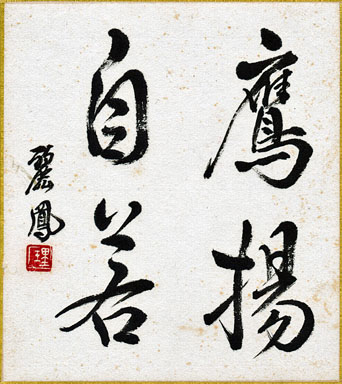 鷹揚
自若
麗鳳